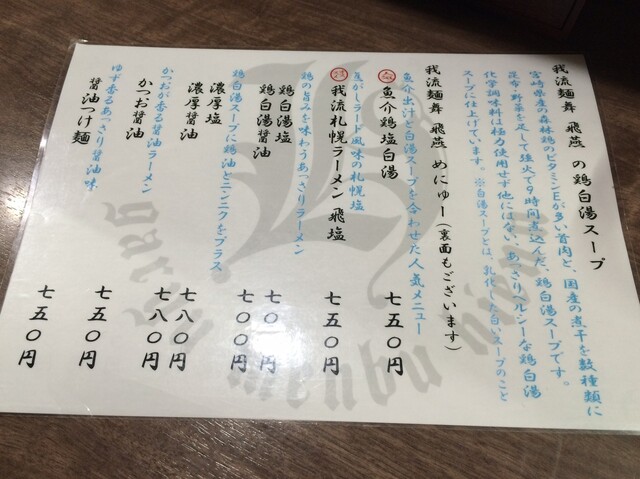 我流麺舞 飛燕 の鶏白湯スープ
宮崎県産の森林鶏のビタミンEが多い首肉と、国産の煮干を数種類に
昆布・野菜を足して強火で9時間煮込んだ、鶏白湯スープです。
化学調味料は極力使用せず他にはない、あっさりヘルシーな鶏白湯
スープに仕上げています。※白湯スープとは、乳化した白いスープのこと
我流麺舞 飛燕 めにゅー(裏面もございます)
魚介出汁と白湯スープを合わせた人気メニュー
魚介鶏塩白湯 七五〇円
焦がしラード風味の札幌塩
我流札幌ラーメン 飛塩 七五〇円
鶏の旨みを味わうあっさりラーメン
鶏白湯塩 七〇〇円
鶏白湯醤油 七〇〇円
鶏白湯スープに鶏油とニンニクをプラス
濃厚塩 七八〇円
濃厚醤油 七八〇円
かつおが香る醤油ラーメン
かつお醤油 七五〇円
ゆず香るあっさり醤油味
醤油つけ麺 七五〇円